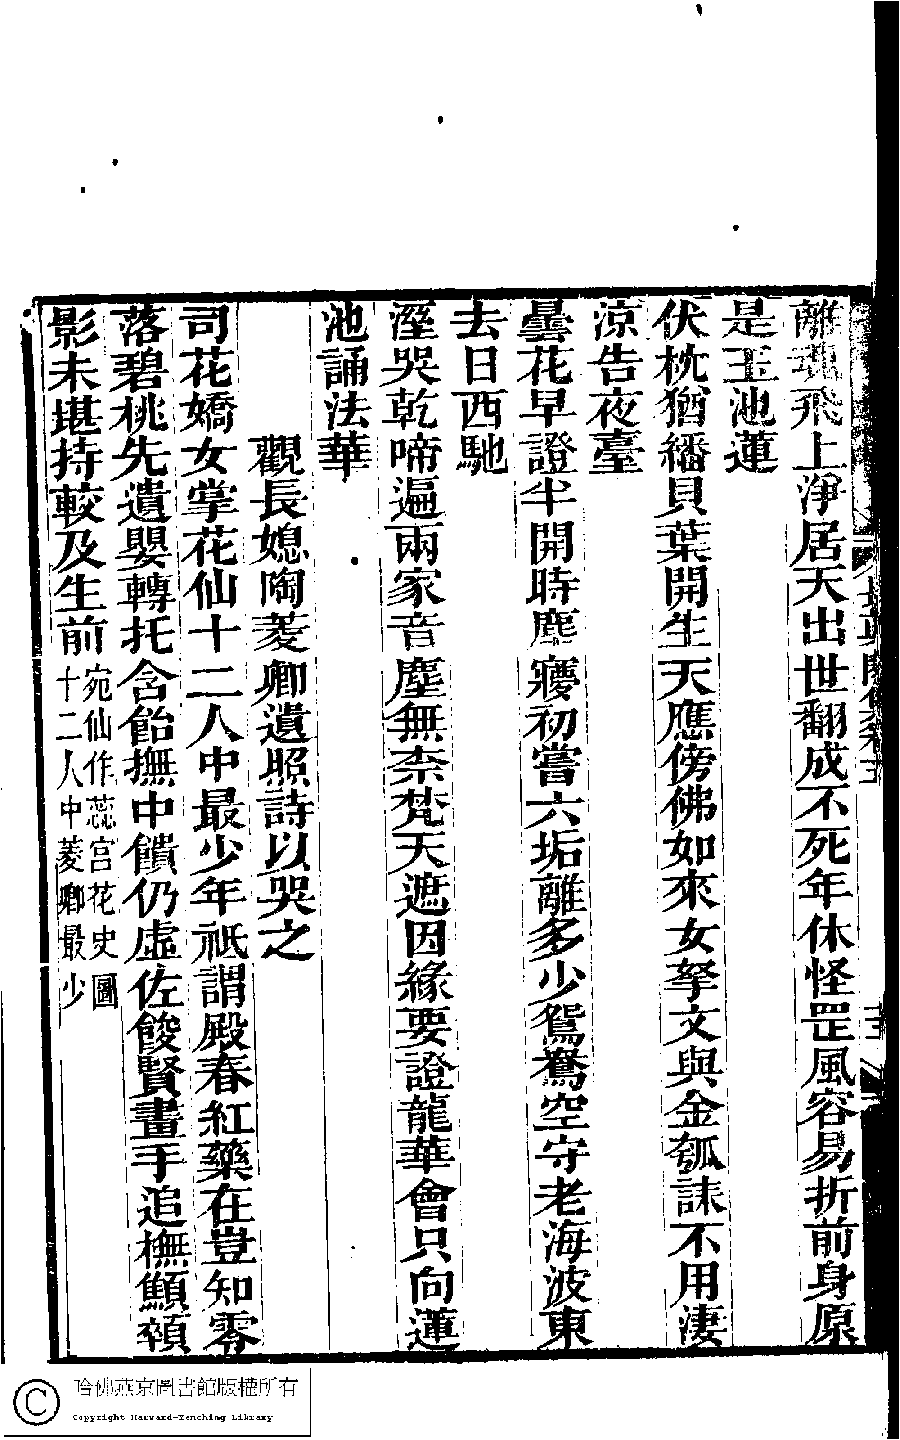 離魂飛上淨居天出世翻成不死年休怪罡風容易折前身原
是玉池蓮
伏枕猶繙貝葉開生天應傍佛如來女拏文與金瓠誄不用淒
涼告夜臺
曇花早證半開時塵寢初嘗六垢離多少鴛鴦空守老海波東
去日西馳
溼哭乾啼遍兩家音塵無柰梵天遮因緣要證龍華會只向蓮
池誦法華
觀長媳陶菱卿遺照詩以哭之
司花嬌女掌花仙十二人中最少年祇謂殿春紅藥在豈知零
落碧桃先遺嬰轉托含飴撫中饋仍虛佐餕賢畫手追橅顯䫜
影未堪持較及生前
宛仙作蕊宮花史圖
十二人中菱卿最少
哈佛燕京圖書館版權所有
Copyright Harvard-Yenching Library